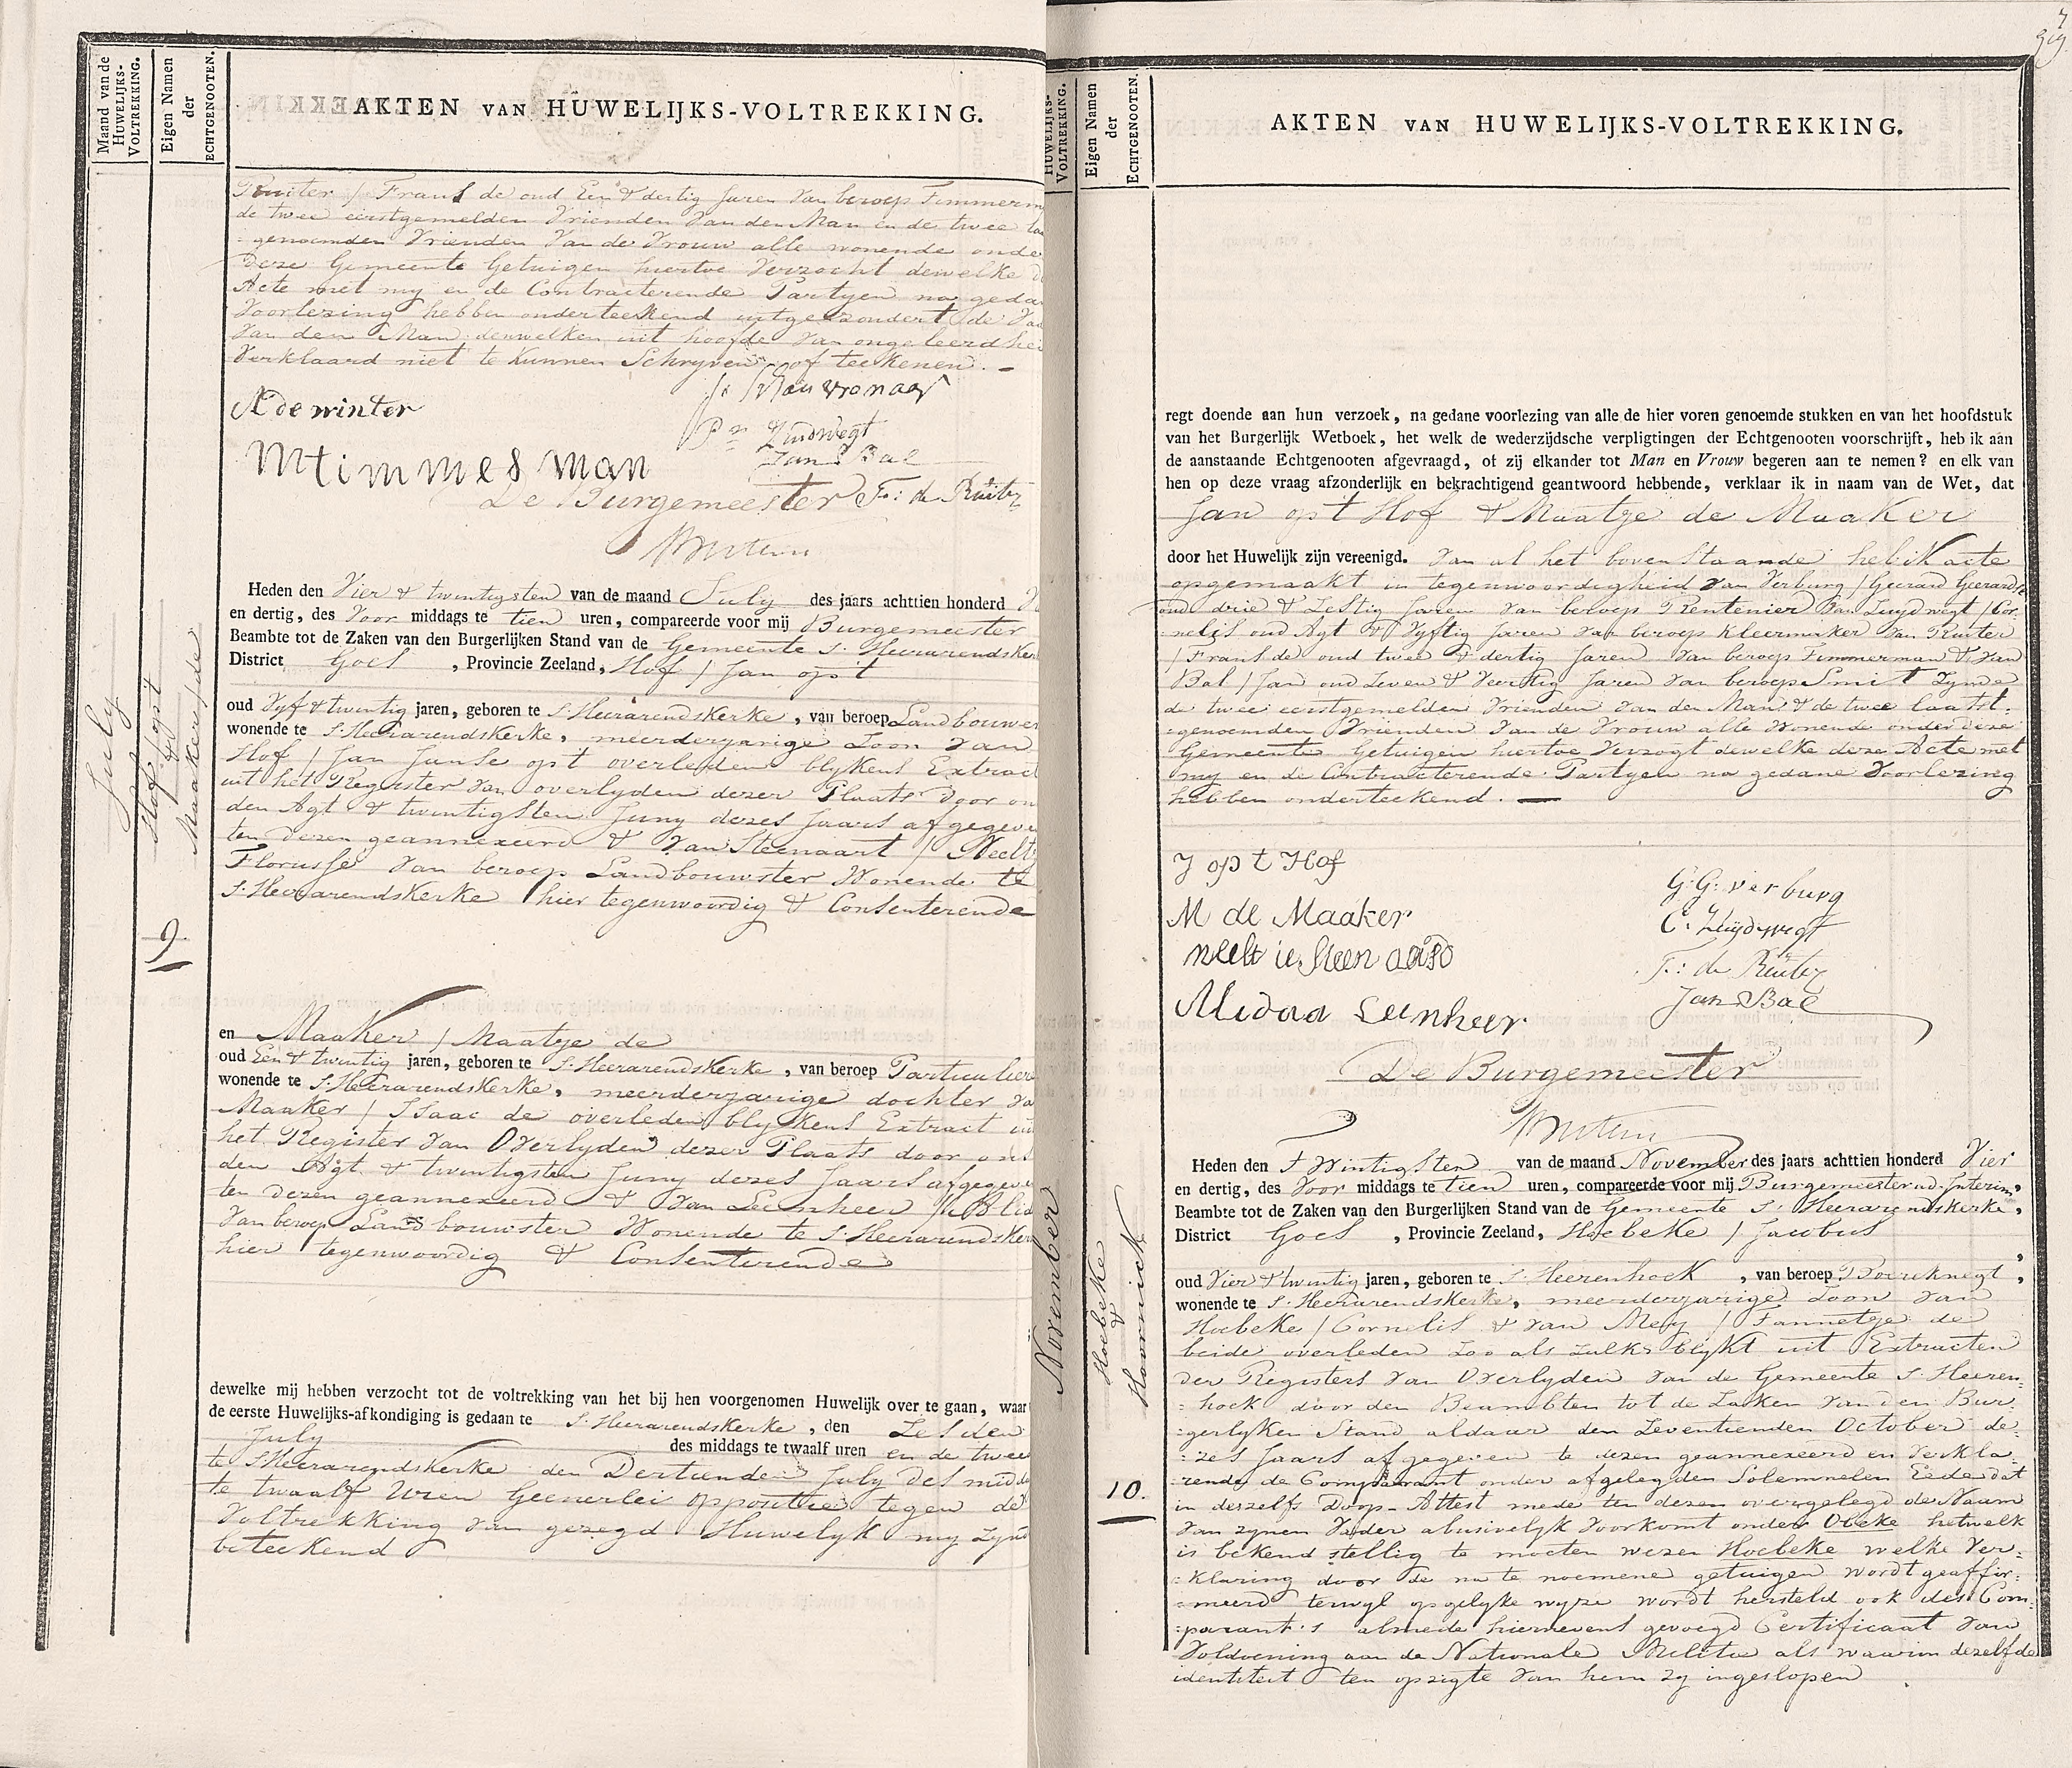 Maand van de
HUWELIJKS-
VOLTREKKING.
Eigen Namen
der
ECHTGENOOTEN.
AKTEN VAN HUWELIJKS-VOLTREKKING.
Ruiter / Frans de oud Een & dertig Jaren van beroep Timmerm
de twee eerstgemelden Vrienden van den Man en de twee la
genoemden Vrienden van de Vrouw alle wonende onde
deze Gemeente Getuigen hiertoe Verzocht dewelke d
Acte met my en de Contracterende Partyen na geda
Voorlezing hebben onderteekend uitgezondert de Va
van den Man denwelken uit hoofde van ongeleerdhei
Verklaard niet te kunnen Schryven of teekenen. —
A de winter
M timmesman
Pr Zuidwegt
Jan Bal
De Burgemeester F: de Ruiter
July
Hof / op't
&
Maaker / de
9.
Heden den Vier & twintigsten van de maand July des jaars achttien honderd V
en dertig, des Voor middags te tien uren, compareerde voor mij Burgemeester
Beambte tot de Zaken van den Burgerlijken Stand van de Gemeente S. Heerarendsker
District Goes, Provincie Zeeland, Hof / Jan op't
oud Vyf & twintig jaren, geboren te S. Heerarendskerke, van beroep Landbouwer
wonende te S. Heerarendskerke, meerderjarige Zoon van
Hof / Jan Janse op't overleden blykens Extract
uit het Register van overlyden dezer Plaats door on
den Agt & twintigsten Juny dezes Jaars afgegeve
ten dezen geannexeerd & van Steenaart / Neelt
Florusse van beroep Landbouwster Wonende te
S. Heerarendskerke hier tegenwoordig & Consenterende
en Maaker / Maatje de
oud Een & twintig jaren, geboren te S. Heerarendskerke, van beroep Particuliere
wonende te S. Heerarendskerke, meerderjarige dochter va
Maaker / Isaac de overleden blykens Extract ui
het Register van Overlyden dezer Plaats door ons
den Agt & twintigsten Juny dezes Jaars afgegeve
ten dezen geannexeerd & van Leenheer /
van beroep Landbouwster Wonende te S. Heerarendsker
hier tegenwoordig & Consenterende
dewelke mij hebben verzocht tot de voltrekking van het bij hen voorgenomen Huwelijk over te gaan, waar
de eerste Huwelijks-afkondiging is gedaan te S. Heerarendskerke, den Zesden
July des middags te twaalf uren en de twee
te S. Heerarendskerke den Dertienden July des midda
te twaalf Uren Geenerlei oppositie tegen de
Voltrekking van gezegd Huwelyk my zynd
beteekend
HUWELIJKS-
VOLTREKKING.
Eigen Namen
der
ECHTGENOOTEN.
AKTEN VAN HUWELIJKS-VOLTREKKING.
regt doende aan hun verzoek, na gedane voorlezing van alle de hier voren genoemde stukken en van het hoofdstuk
van het Burgerlijk Wetboek, het welk de wederzijdsche verpligtingen der Echtgenooten voorschrijft, heb ik aan
de aanstaande Echtgenooten afgevraagd, of zij elkander tot Man en Vrouw begeren aan te nemen? en elk van
hen op deze vraag afzonderlijk en bekrachtigend geantwoord hebbende, verklaar ik in naam van de Wet, dat
Jan op't Hof & Maatje de Maaker
door het Huwelijk zijn vereenigd. Van al het bovenstaande heb ik acte
opgemaakt in tegenwoordigheid van Verburg / Geerard Geerardse
oud drie & Zestig Jaren van beroep Rentenier van Zuydwegt / Cor-
nelis oud Agt & Vyftig Jaren van beroep Kleermaker van Ruiter
/ Frans de oud twee & dertig Jaren van beroep Timmerman & van
Bal / Jan oud Zeven & Veertig Jaren van beroep Smit Zynde
de twee eerstgemelden Vrienden van den Man & de twee laatst-
genoemden Vrienden van de Vrouw alle Wonende onder deze
Gemeente Getuigen hiertoe Verzogt dewelke deze Acte met
my en de Contracterende Partyen na gedane Voorlezing
hebben onderteekend. —
J op t Hof
M de Maaker
G: G: verburg
C: Zuydwegt
F: de Ruiter
Jan Bal
De Burgemeester
November
Hoebeke
&
Hoornick
10.
Heden den Twintigsten van de maand November des jaars achttien honderd Vier
en dertig, des Voor middags te tien uren, compareerde voor mij Burgemeester ad-Interim,
Beambte tot de Zaken van den Burgerlijken Stand van de Gemeente S. Heerarendskerke,
District Goes, Provincie Zeeland, Hoebeke / Jacobus
oud Vier & twintig jaren, geboren te S. Heerenhoek, van beroep Boereknegt,
wonende te S. Heerarendskerke, meerderjarige Zoon van
Hoebeke / Cornelis & van Mey / Fannetje de
beide overleden zoo als zulks blykt uit Extracten
der Registers van Overlyden van de Gemeente S. Heeren-
hoek door den Beambten tot de Zaken van den Bur-
gerlyken Stand aldaar den Zeventienden October de-
zes Jaars afgegeven te dezen geannexeerd en verkla-
rende de Comparant onder afgelegden Solemnelen Eede dat
in deszelfs Doop-Attest mede ten dezen overgelegd de Naam
van zynen Vader abusivelyk Voorkomt onder Obeke hetwelk
is bekend stellig te moeten wezen Hoebeke welke Ver-
klaring door de na te noemene getuigen wordt geaffir-
meerd terwyl op gelyke wyze wordt hersteld ook des Com-
parant's almede hiernevens gevoegd Certificaat van
Voldoening aan de Nationale Militie als waarin dezelfde
identiteit ten opzigte van hem zy ingeslopen